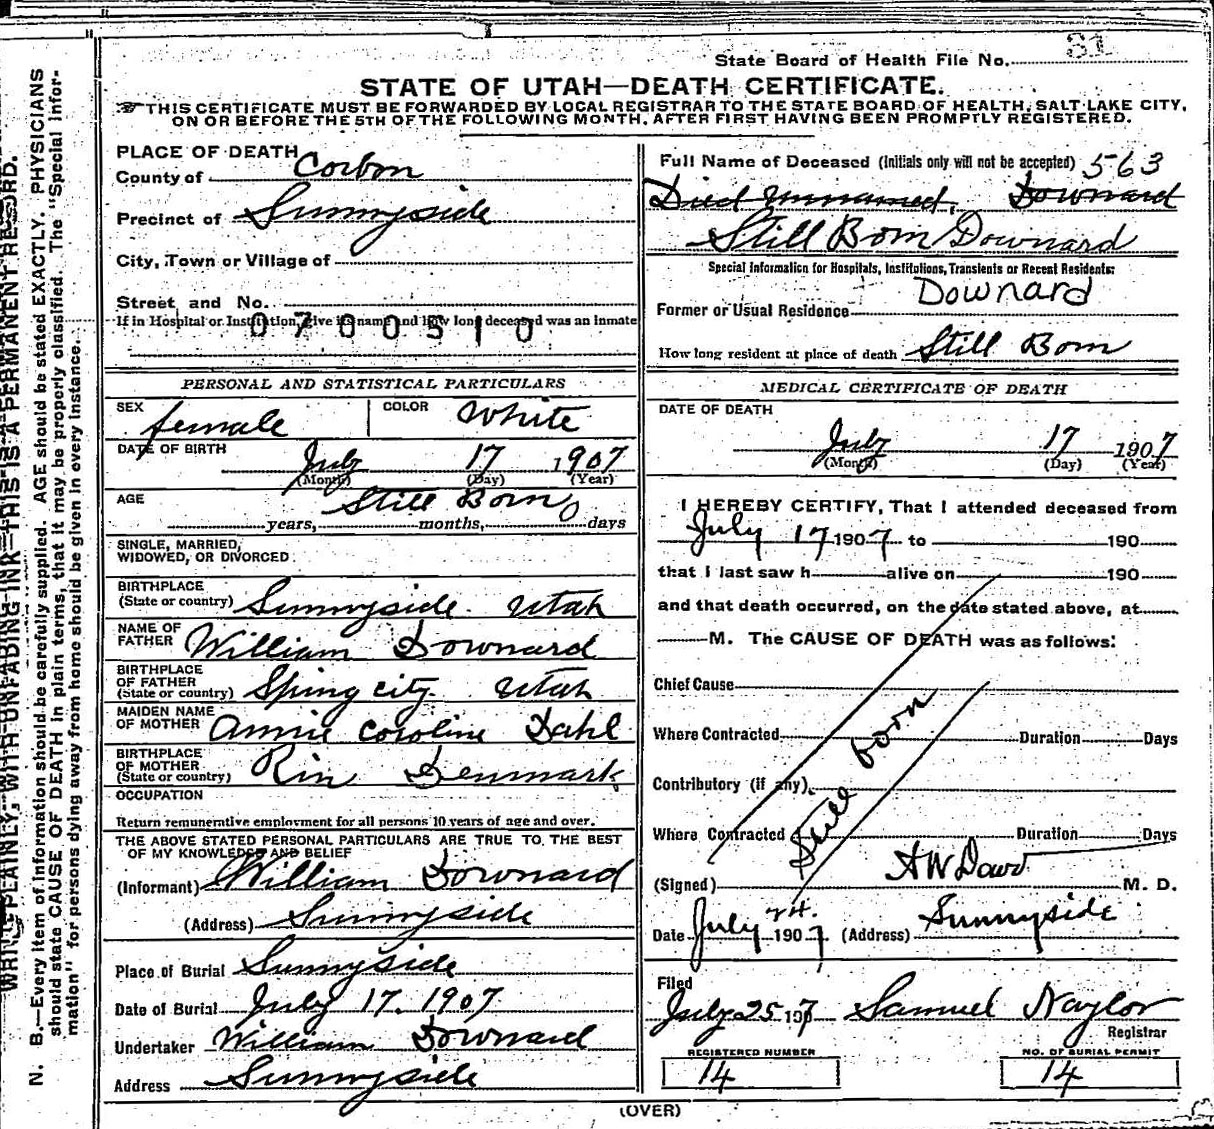 State Board of Health File No. 81
STATE OF UTAH—DEATH CERTIFICATE.
THIS CERTIFICATE MUST BE FORWARDED BY LOCAL REGISTRAR TO THE STATE BOARD OF HEALTH, SALT LAKE CITY,
ON OR BEFORE THE 5TH OF THE FOLLOWING MONTH, AFTER FIRST HAVING BEEN PROMPTLY REGISTERED.
WRITE PLAINLY, WITH UNFADING INK—THIS IS A PERMANENT RECORD.
N. B.—Every item of information should be carefully supplied. AGE should be stated EXACTLY. PHYSICIANS
should state CAUSE OF DEATH in plain terms, that it may be properly classified. The "Special Infor-
mation" for persons dying away from home should be given in every instance.
PLACE OF DEATH
County of Carbon
Precinct of Sunnyside
City, Town or Village of
Street and No.
If in Hospital or Institution, give its name and how long deceased was an inmate
0700510
PERSONAL AND STATISTICAL PARTICULARS
SEX female COLOR White
DATE OF BIRTH
July 17 1907
(Month) (Day) (Year)
AGE Still Born
years, months, days
SINGLE, MARRIED,
WIDOWED, OR DIVORCED
BIRTHPLACE
(State or country) Sunnyside. Utah
NAME OF
FATHER William Downard
BIRTHPLACE
OF FATHER
(State or country) Spring city. Utah
MAIDEN NAME
OF MOTHER Annie Caroline Dahl
BIRTHPLACE
OF MOTHER
(State or country) Rin Denmark
OCCUPATION
Return remunerative employment for all persons 10 years of age and over.
THE ABOVE STATED PERSONAL PARTICULARS ARE TRUE TO THE BEST
OF MY KNOWLEDGE AND BELIEF
(Informant) William Downard
(Address) Sunnyside
Place of Burial Sunnyside
Date of Burial July 17. 1907
Undertaker William Downard
Address Sunnyside
Full Name of Deceased (Initials only will not be accepted) 563
Died Unnamed, Downard
Still Born Downard
Special Information for Hospitals, Institutions, Transients or Recent Residents:
Downard
Former or Usual Residence
How long resident at place of death Still Born
MEDICAL CERTIFICATE OF DEATH
DATE OF DEATH
July 17 1907
(Month) (Day) (Year)
I HEREBY CERTIFY, That I attended deceased from
July 17 1907 to 190
that I last saw h alive on 190
and that death occurred, on the date stated above, at
M. The CAUSE OF DEATH was as follows:
Chief Cause
Where Contracted Duration Days
Contributory (if any)
Still born
Where Contracted Duration Days
(Signed) M. D.
Date July 24. 1907 (Address) Sunnyside
Filed
July 25 1907 Samuel Naylor
Registrar
REGISTERED NUMBER
14
NO. OF BURIAL PERMIT
14
(OVER)